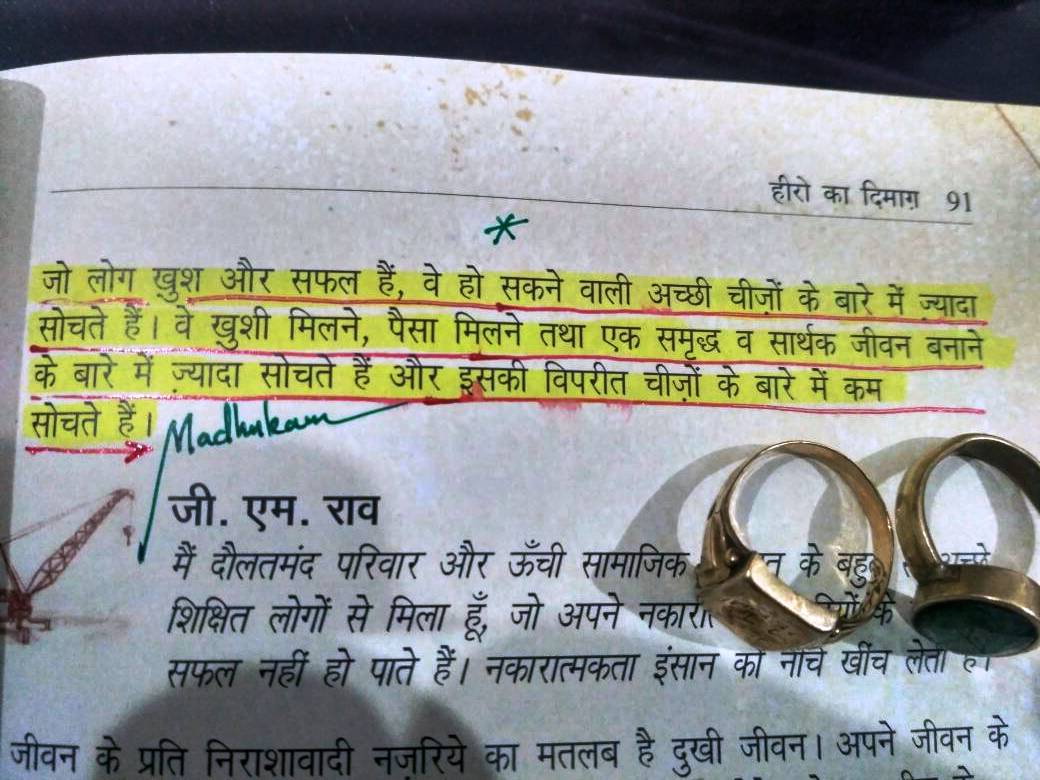 हीरो का दिमाग़ 91
*
जो लोग ख़ुश और सफल हैं, वे हो सकने वाली अच्छी चीज़ों के बारे में ज़्यादा
सोचते हैं। वे ख़ुशी मिलने, पैसा मिलने तथा एक समृद्ध व सार्थक जीवन बनाने
के बारे में ज़्यादा सोचते हैं और इसकी विपरीत चीज़ों के बारे में कम
सोचते हैं।
जी. एम. राव
मैं दौलतमंद परिवार और ऊँची सामाजिक के
शिक्षित लोगों से मिला हूँ, जो अपने के
सफल नहीं हो पाते हैं। नकारात्मकता इंसान को नीचे खींच लेती है।
जीवन के प्रति निराशावादी नज़रिये का मतलब है दुखी जीवन। अपने जीवन के